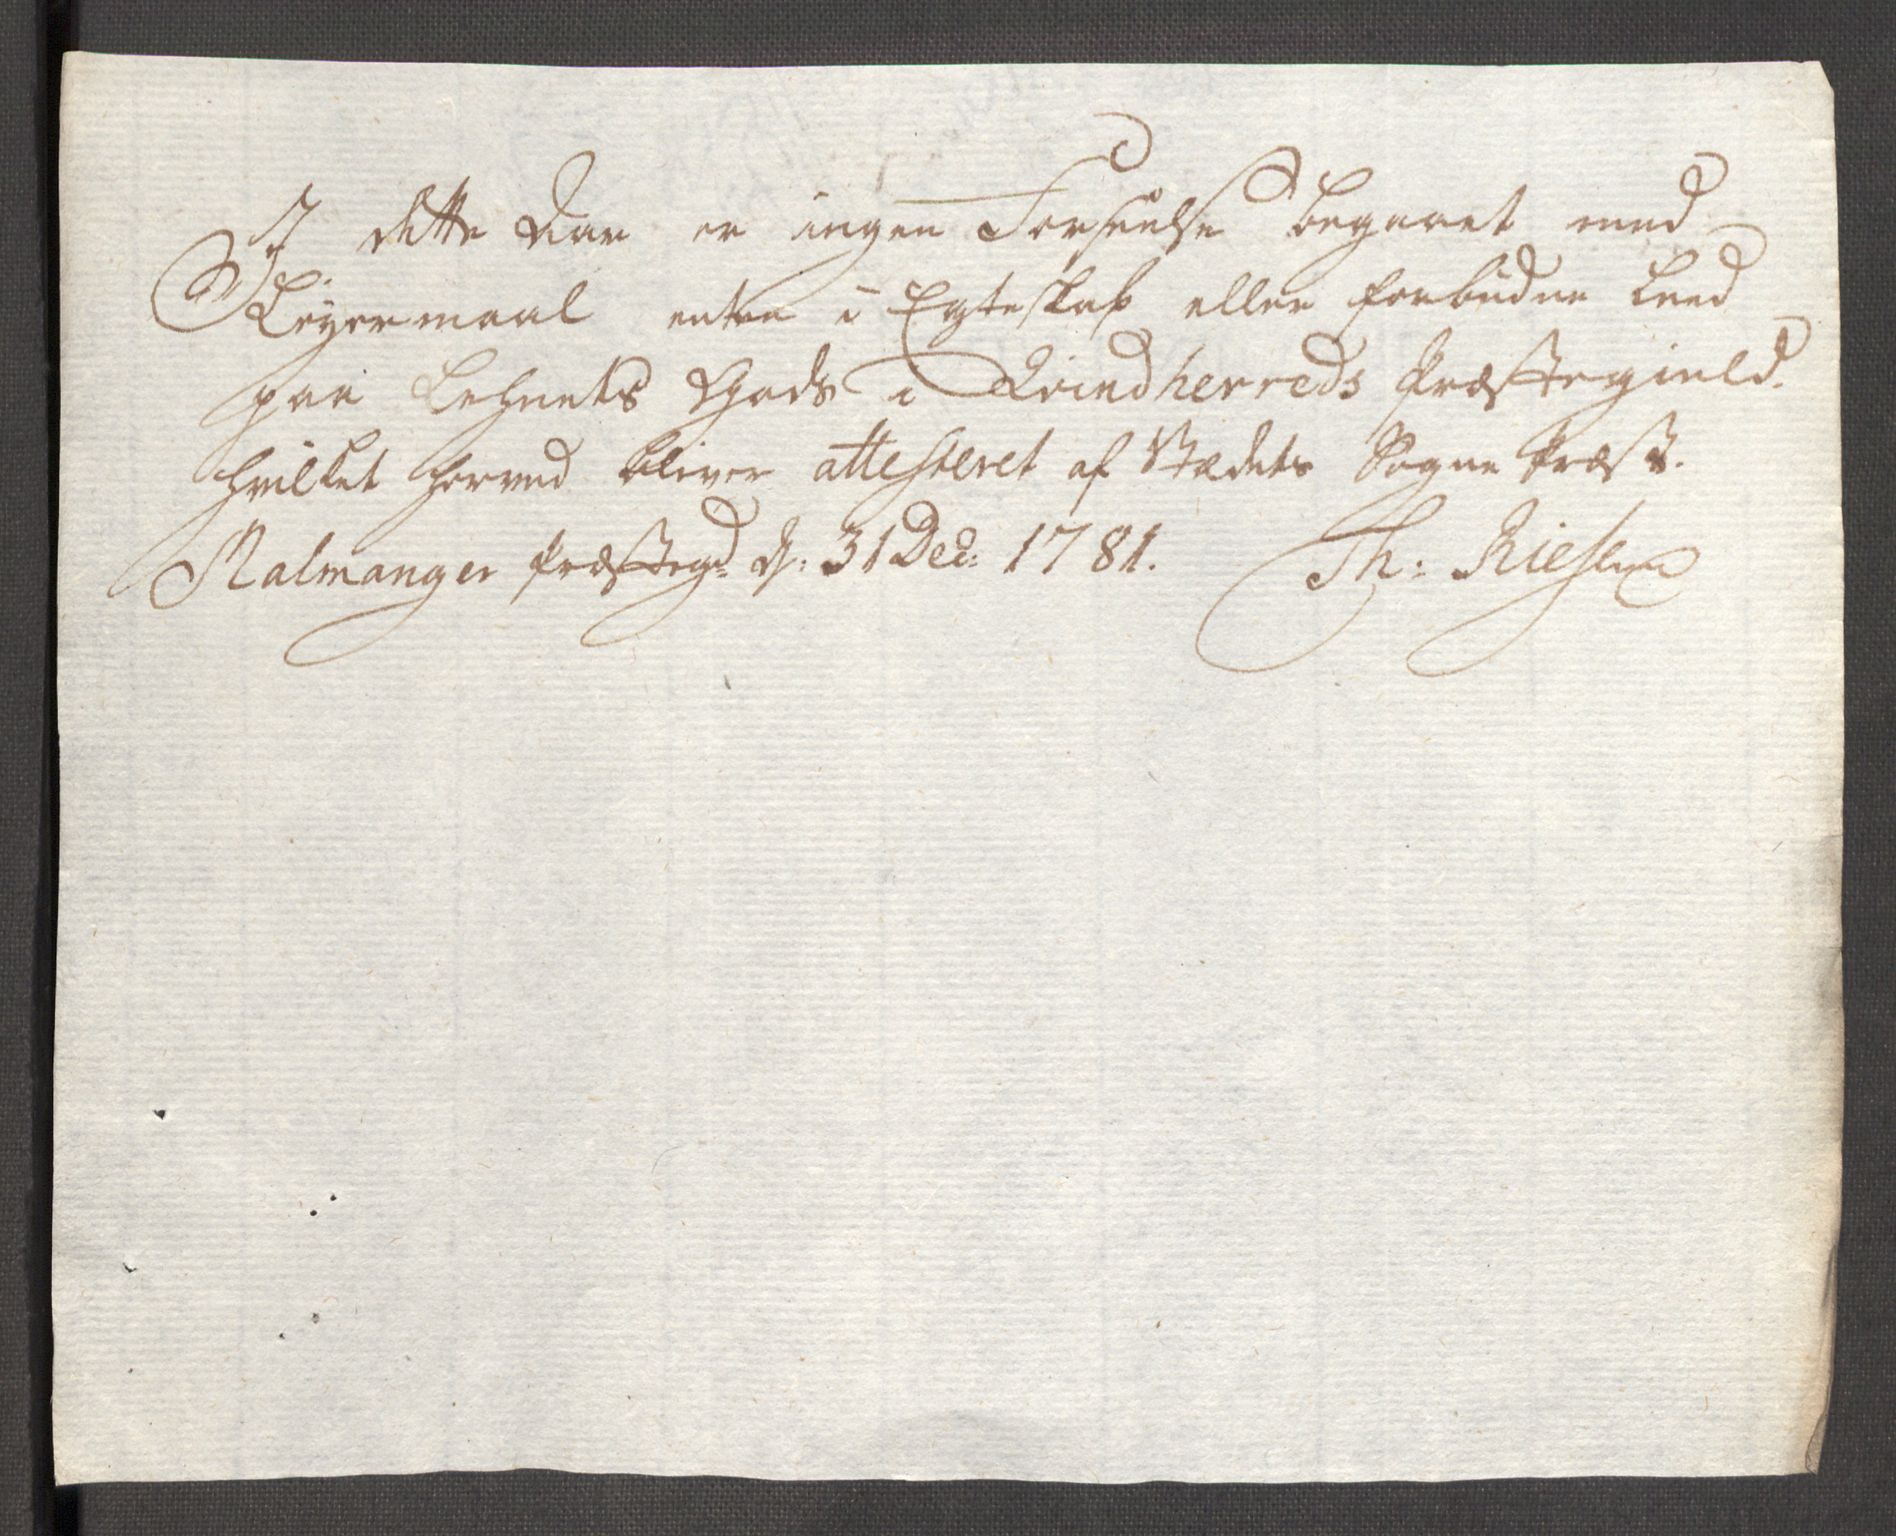 I dette Aar er ingen Forseelse begaaet med
Leyermaal enten i Egteskab eller forbudne Leed
paa Lehnets Gods i Qvindherreds Præstegield.
hvilket herved bliver attesteret af Stædets Sogne Præst.
Malmanger Præstegd d: 31 Dec: 1781. Th: Riesen